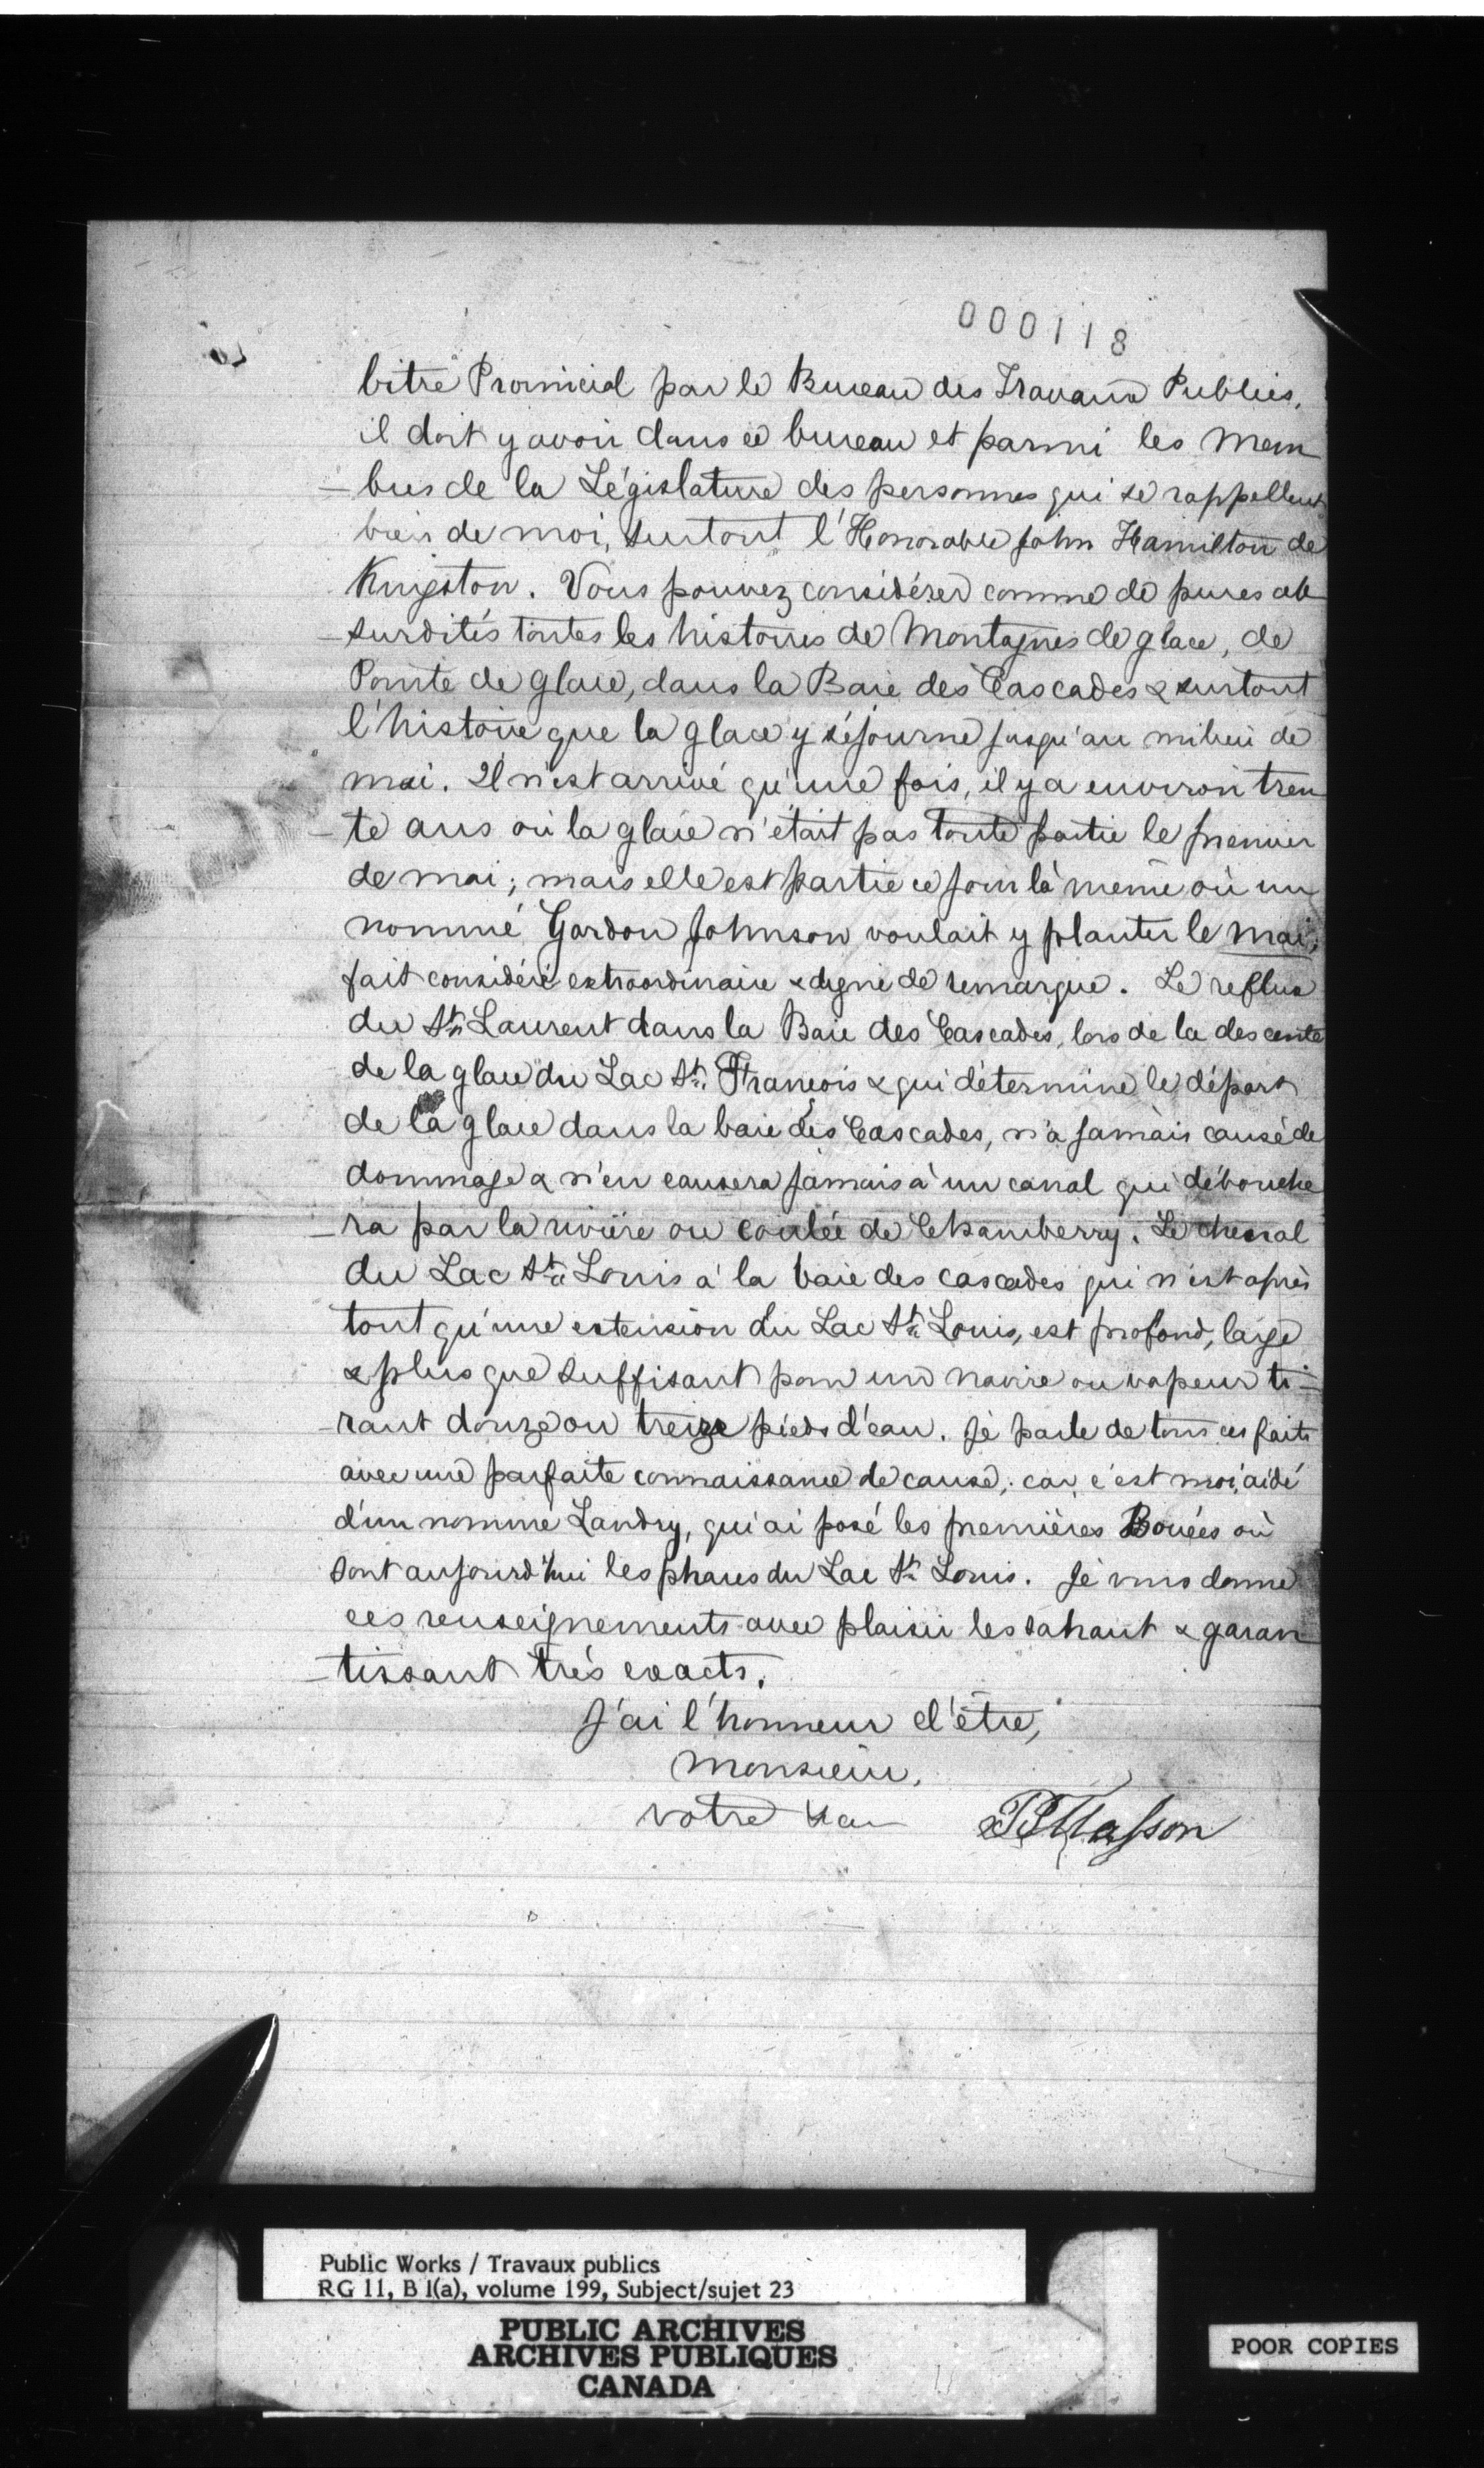 000118
bitre Provincial par le Bureau des Travaux Publics,
il doit y avoir dans ce bureau et parmi les Mem
-bres de la Législature des personnes qui se rappellent
bien de moi, surtout l'Honorable John Hamilton de
Kingston. Vous pouvez considérer comme de pures ab
-surdités toutes les histoires de Montagnes de glace, de
Pointe de glace, dans la Baie des Cascades & surtout
l'histoire que la glace y séjourne jusqu'au milieu de
mai. Il n'est arrivé qu'une fois, il y a environ tren
-te ans où la glace n'était pas toute partie le premier
de mai; mais elle est partie ce jour là même où un
nommé Gordon Johnson voulait y planter le mai,
fait considéré extraordinaire & digne de remarque. Le reflux
du St. Laurent dans la Baie des Cascades, lors de la descente
de la glace du Lac St. François & qui détermine le départ
de la glace dans la baie des Cascades, n'a jamais causé de
dommage & n'en causera jamais à un canal qui débouche
-ra par la rivière ou coulée de Chamberry. Le chenal
du Lac St. Louis à la baie des cascades qui n'est après
tout qu'une extension du Lac St. Louis, est profond, large
& plus que suffisant pour un navire ou vapeur ti-
-rant douze ou treize pieds d'eau. Je parle de tous ces faits
avec une parfaite connaissance de cause, car, c'est moi, aidé
d'un nommé Landry, qui ai posé les premières Bouées où
sont aujourd'hui les phares du Lac St. Louis. Je vous donne
ces renseignements avec plaisir les sahant & garan
-tissant très exacts.
J'ai l'honneur d'être,
Monsieur,
votre
Masson
Public Works / Travaux publics
RG 11, B 1(a), volume 199, Subject/sujet 23
PUBLIC ARCHIVES
ARCHIVES PUBLIQUES
CANADA
POOR COPIES